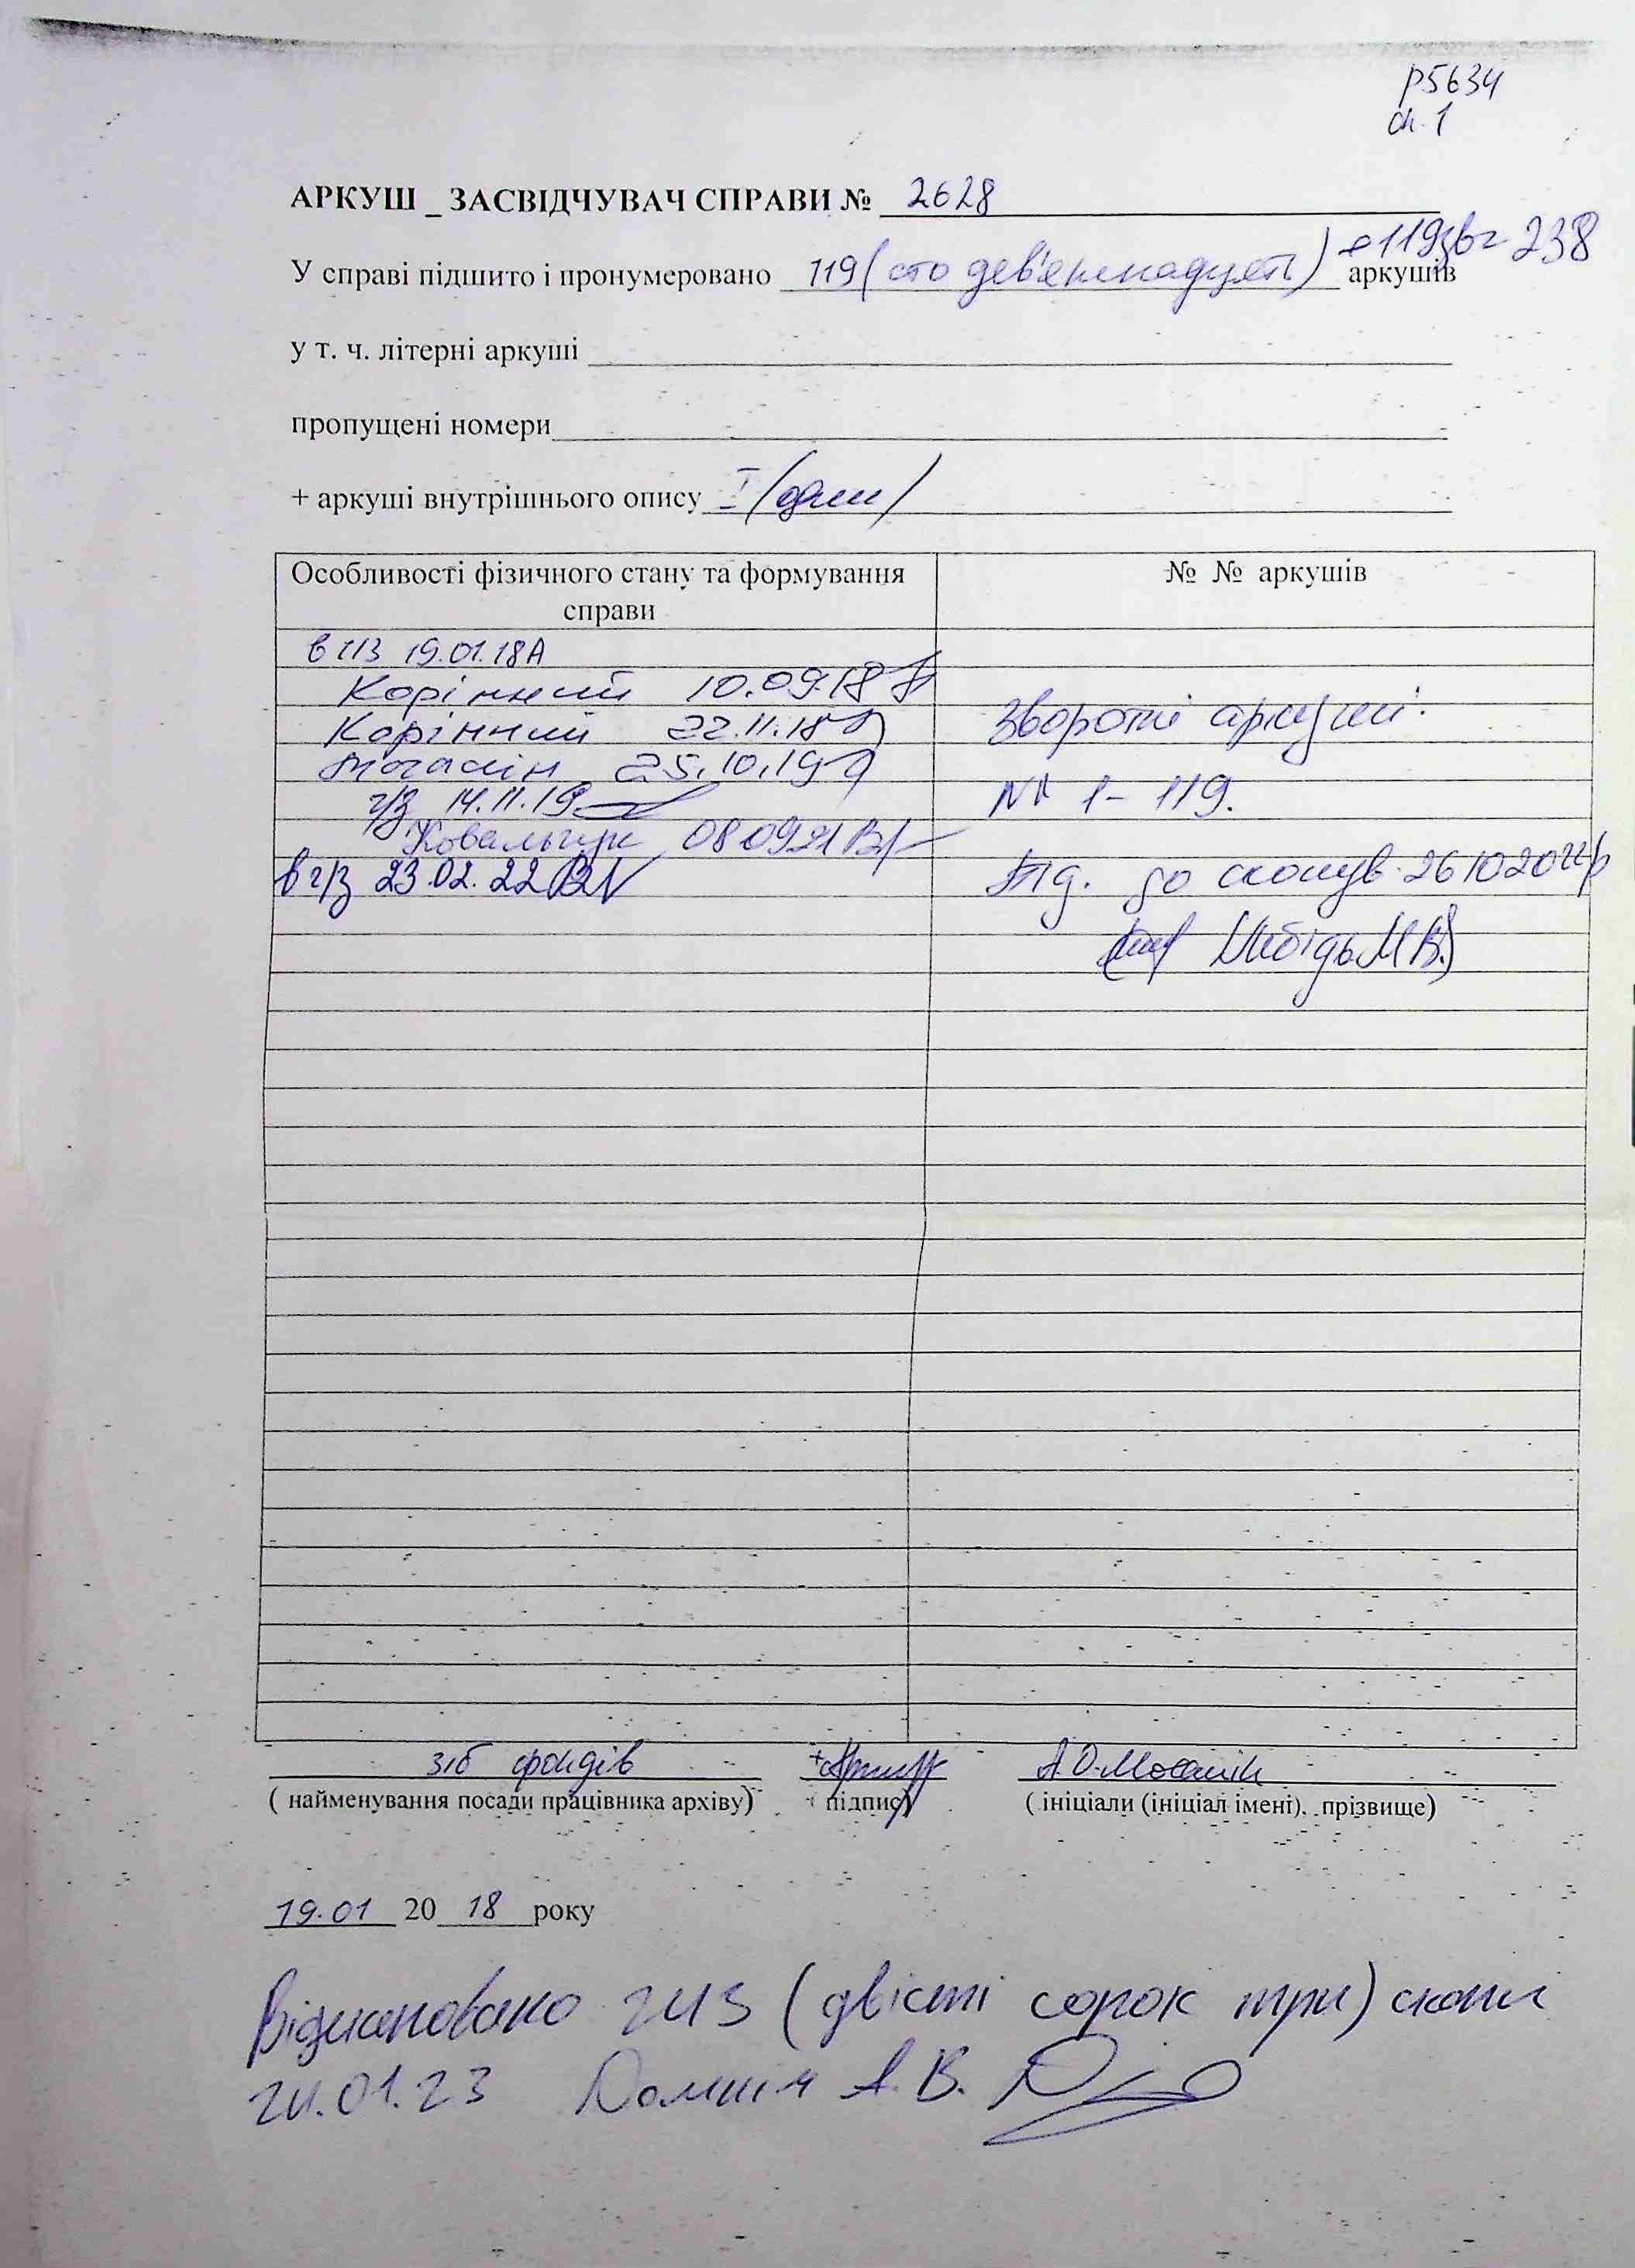 р5634
оп. 1
АРКУШ _ ЗАСВІДЧУВАЧ СПРАВИ № 2628
У справі підшито і пронумеровано 119 (сто дев'ятнадцять) + 119зв = 238 аркушів
у т. ч. літерні аркуші
пропущені номери
+ аркуші внутрішнього опису I (один)
Особливості фізичного стану та формування справи
№ № аркушів
в ч/з 19.01.18
Корінний 10.09.18
Корінний 22.11.18
Зворотні аркуші:
25.10.19
ч/з 14.11.19
№№ 1-119.
Ковальчук 08.09.21
в ч/з 23.02.22
Підг. до сканув. 26.10.2022р
зіб фондів
А.О.
( найменування посади працівника архіву)
( підпис)
( ініціали (ініціал імені), прізвище)
19.01 20 18 року
Відскановано 243 (двісті сорок три) скани
24.01.23 А. В.